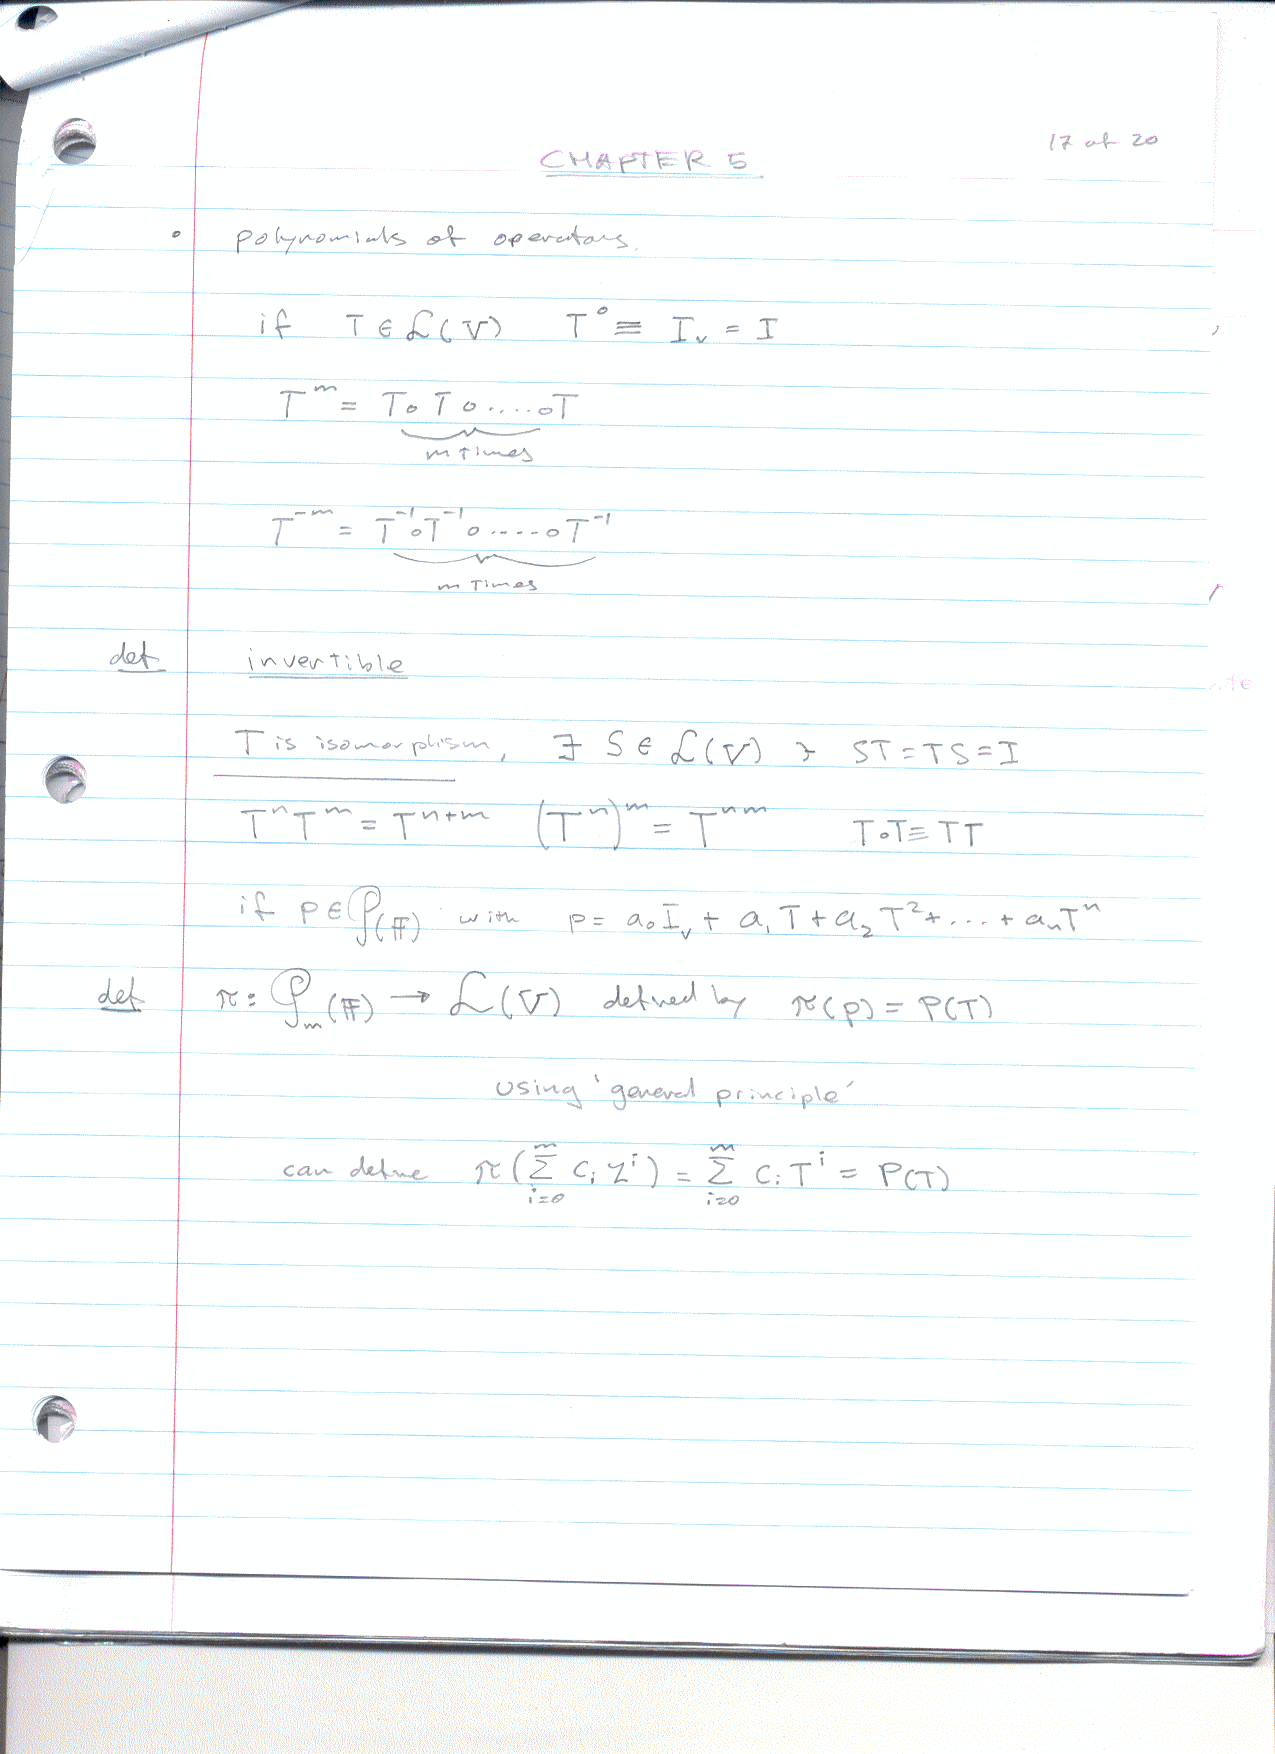 17 of 20
CHAPTER 5
∘ polynomials of operators.
if T ∈ ℒ(V) T⁰ ≡ I_v = I
T^m = T∘T∘.....∘T
m times
T^-m = T^-1∘T^-1∘.....∘T^-1
m Times
def invertible
T is isomorphism, ∃ S ∈ ℒ(V) ∋ ST = TS = I
T^n T^m = T^n+m (T^n)^m = T^nm T∘T ≡ TT
if p ∈ 𝒫(𝔽) with p = a₀I_v + a₁T + a₂T² + ... + a_nT^n
def π: 𝒫_m(𝔽) → ℒ(V) defined by π(p) = P(T)
using 'general principle'
can define π(∑_{i=0}^m c_i z^i) = ∑_{i=0}^m c_i T^i = P(T)